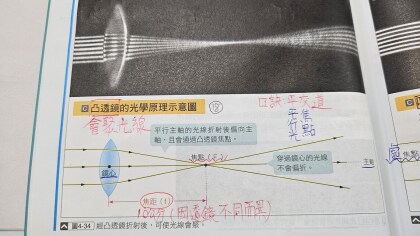 凸透鏡的光學原理示意圖 ⑱
會聚光線
口訣 平交道
平焦
行
光點
平行主軸的光線折射後偏向主
軸，且會通過凸透鏡焦點。
焦點
穿過鏡心的光線
不會偏折。
主軸
鏡心
焦距（f）
焦點
圖4-34 經凸透鏡折射後，可使光線會聚。